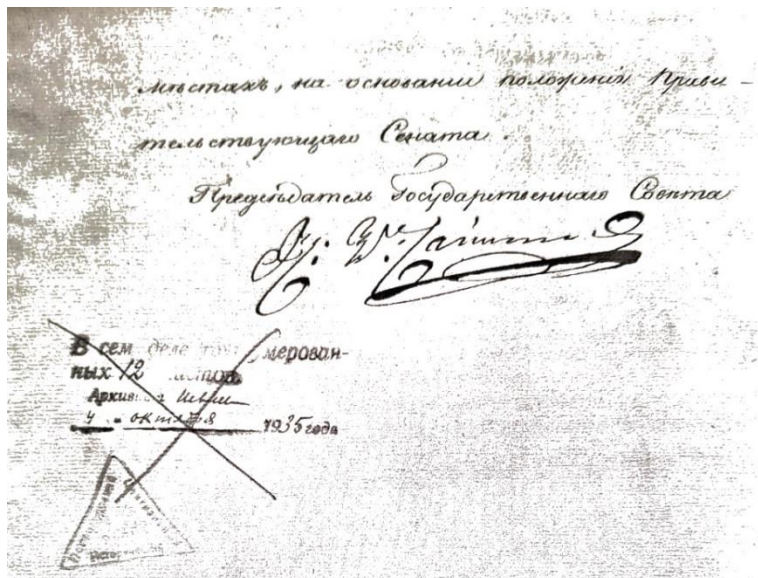 мѣстахъ, на основаніи положенія Прави-
тельствующаго Сената.
Предсѣдатель Государственнаго Совѣта
В сем деле мерован-
ных 12
4 - октября 1935 года